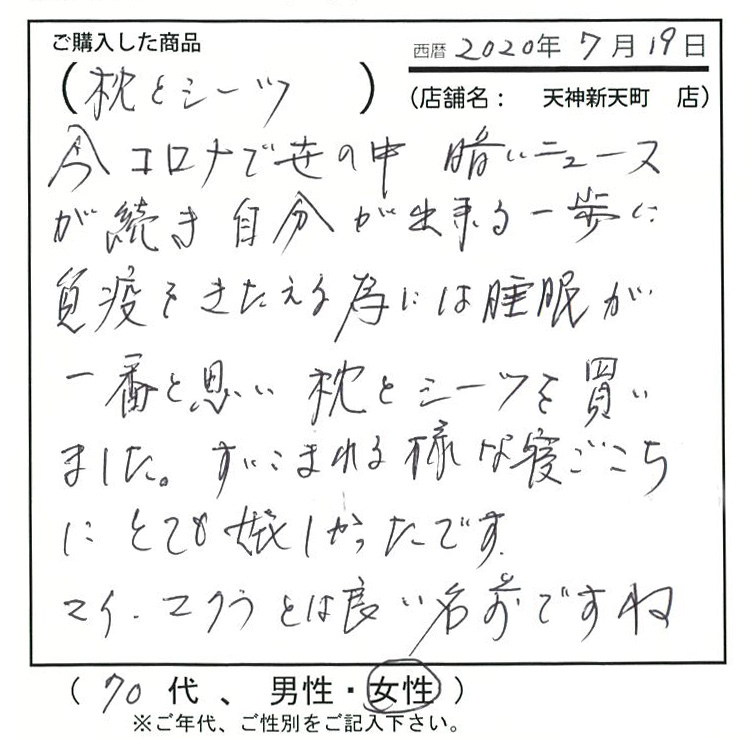 ご購入した商品
西暦 2020年 7月 19日
(枕とシーツ)
(店舗名： 天神新天町 店)
今コロナで世の中 暗いニュース
が続き自分が出来る一歩に
負疫をきたえる為には睡眠が
一番と思い 枕とシーツを買い
ました。すいこまれる様な寝ごこち
にとても嬉しかったです
マイ.マクラとは良い名前ですね
( 70 代 、 男性・女性 )
※ご年代、ご性別をご記入下さい。